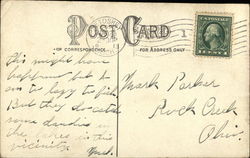 POST CARD
OF CORRESPONDENCE
FOR ADDRESS ONLY
1
This might have
happen but I
am to lazy to fish
But they do catch
some dandies in
the lakes in this
vicinity.
Mark Parker
Rock Creek
Ohio.